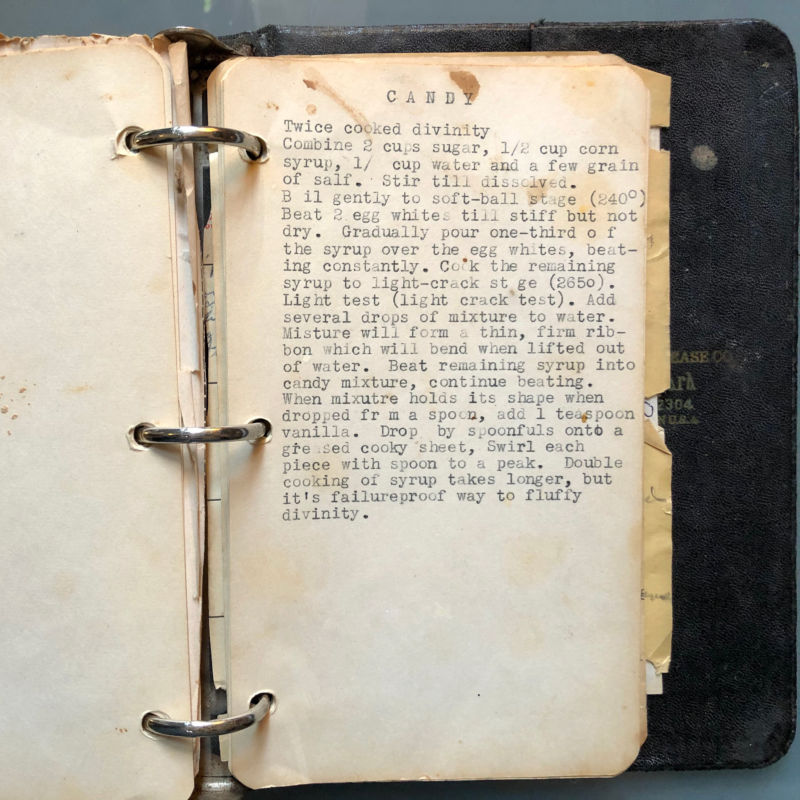 C A N D Y
Twice cooked divinity
Combine 2 cups sugar, 1/2 cup corn
syrup, 1/  cup water and a few grain
of salf.  Stir till dissolved.
B il gently to soft-ball stage (240º)
Beat 2 egg whites till stiff but not
dry.  Gradually pour one-third o f
the syrup over the egg whites, beat-
ing constantly. Cook the remaining
syrup to light-crack st ge (265o).
Light test (light crack test). Add
several drops of mixture to water.
Misture will form a thin, firm rib-
bon which will bend when lifted out
of water.  Beat remaining syrup into
candy mixture, continue beating.
When mixutre holds its shape when
dropped fr m a spoon, add 1 teaspoon
vanilla.  Drop by spoonfuls onto a
greased cooky sheet, Swirl each
piece with spoon to a peak.  Double
cooking of syrup takes longer, but
it's failureproof way to fluffy
divinity.
EASE CO
2304
U.S.A